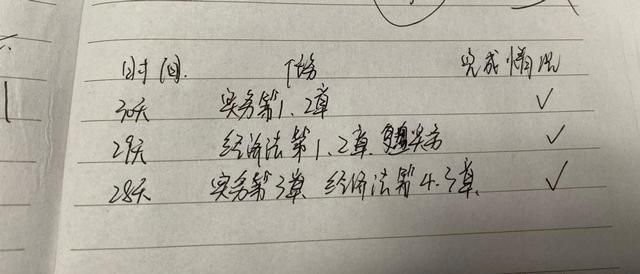 时间. 任务 完成情况
30天 实务第1.2章 ✓
29天 经济法第1.2章 实务 ✓
28天 实务第3章 经济法第4.3章. ✓